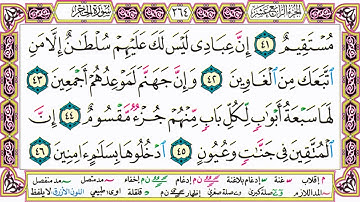 الجزء الرابع عشر ٢٦٤ سورة الحجر
مُسْتَقِيمٌ ٤١ إِنَّ عِبَادِى لَيْسَ لَكَ عَلَيْهِمْ سُلْطَٰنٌ إِلَّا مَنِ
ٱتَّبَعَكَ مِنَ ٱلْغَاوِينَ ٤٢ وَإِنَّ جَهَنَّمَ لَمَوْعِدُهُمْ أَجْمَعِينَ ٤٣
لَهَا سَبْعَةُ أَبْوَٰبٍ لِّكُلِّ بَابٍ مِّنْهُمْ جُزْءٌ مَّقْسُومٌ ٤٤ إِنَّ
ٱلْمُتَّقِينَ فِى جَنَّٰتٍ وَعُيُونٍ ٤٥ ٱدْخُلُوهَا بِسَلَٰمٍ ءَامِنِينَ ٤٦